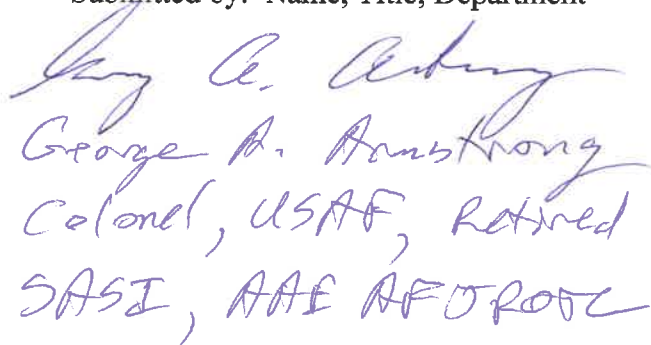 Submitted by: Name, Title, Department
George A. Armstrong
Colonel, USAF, Retired
SASI, AAE AFJROTC